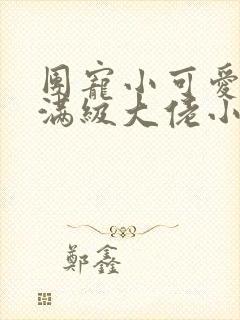 團寵小可愛
滿級大佬小
鄭鑫